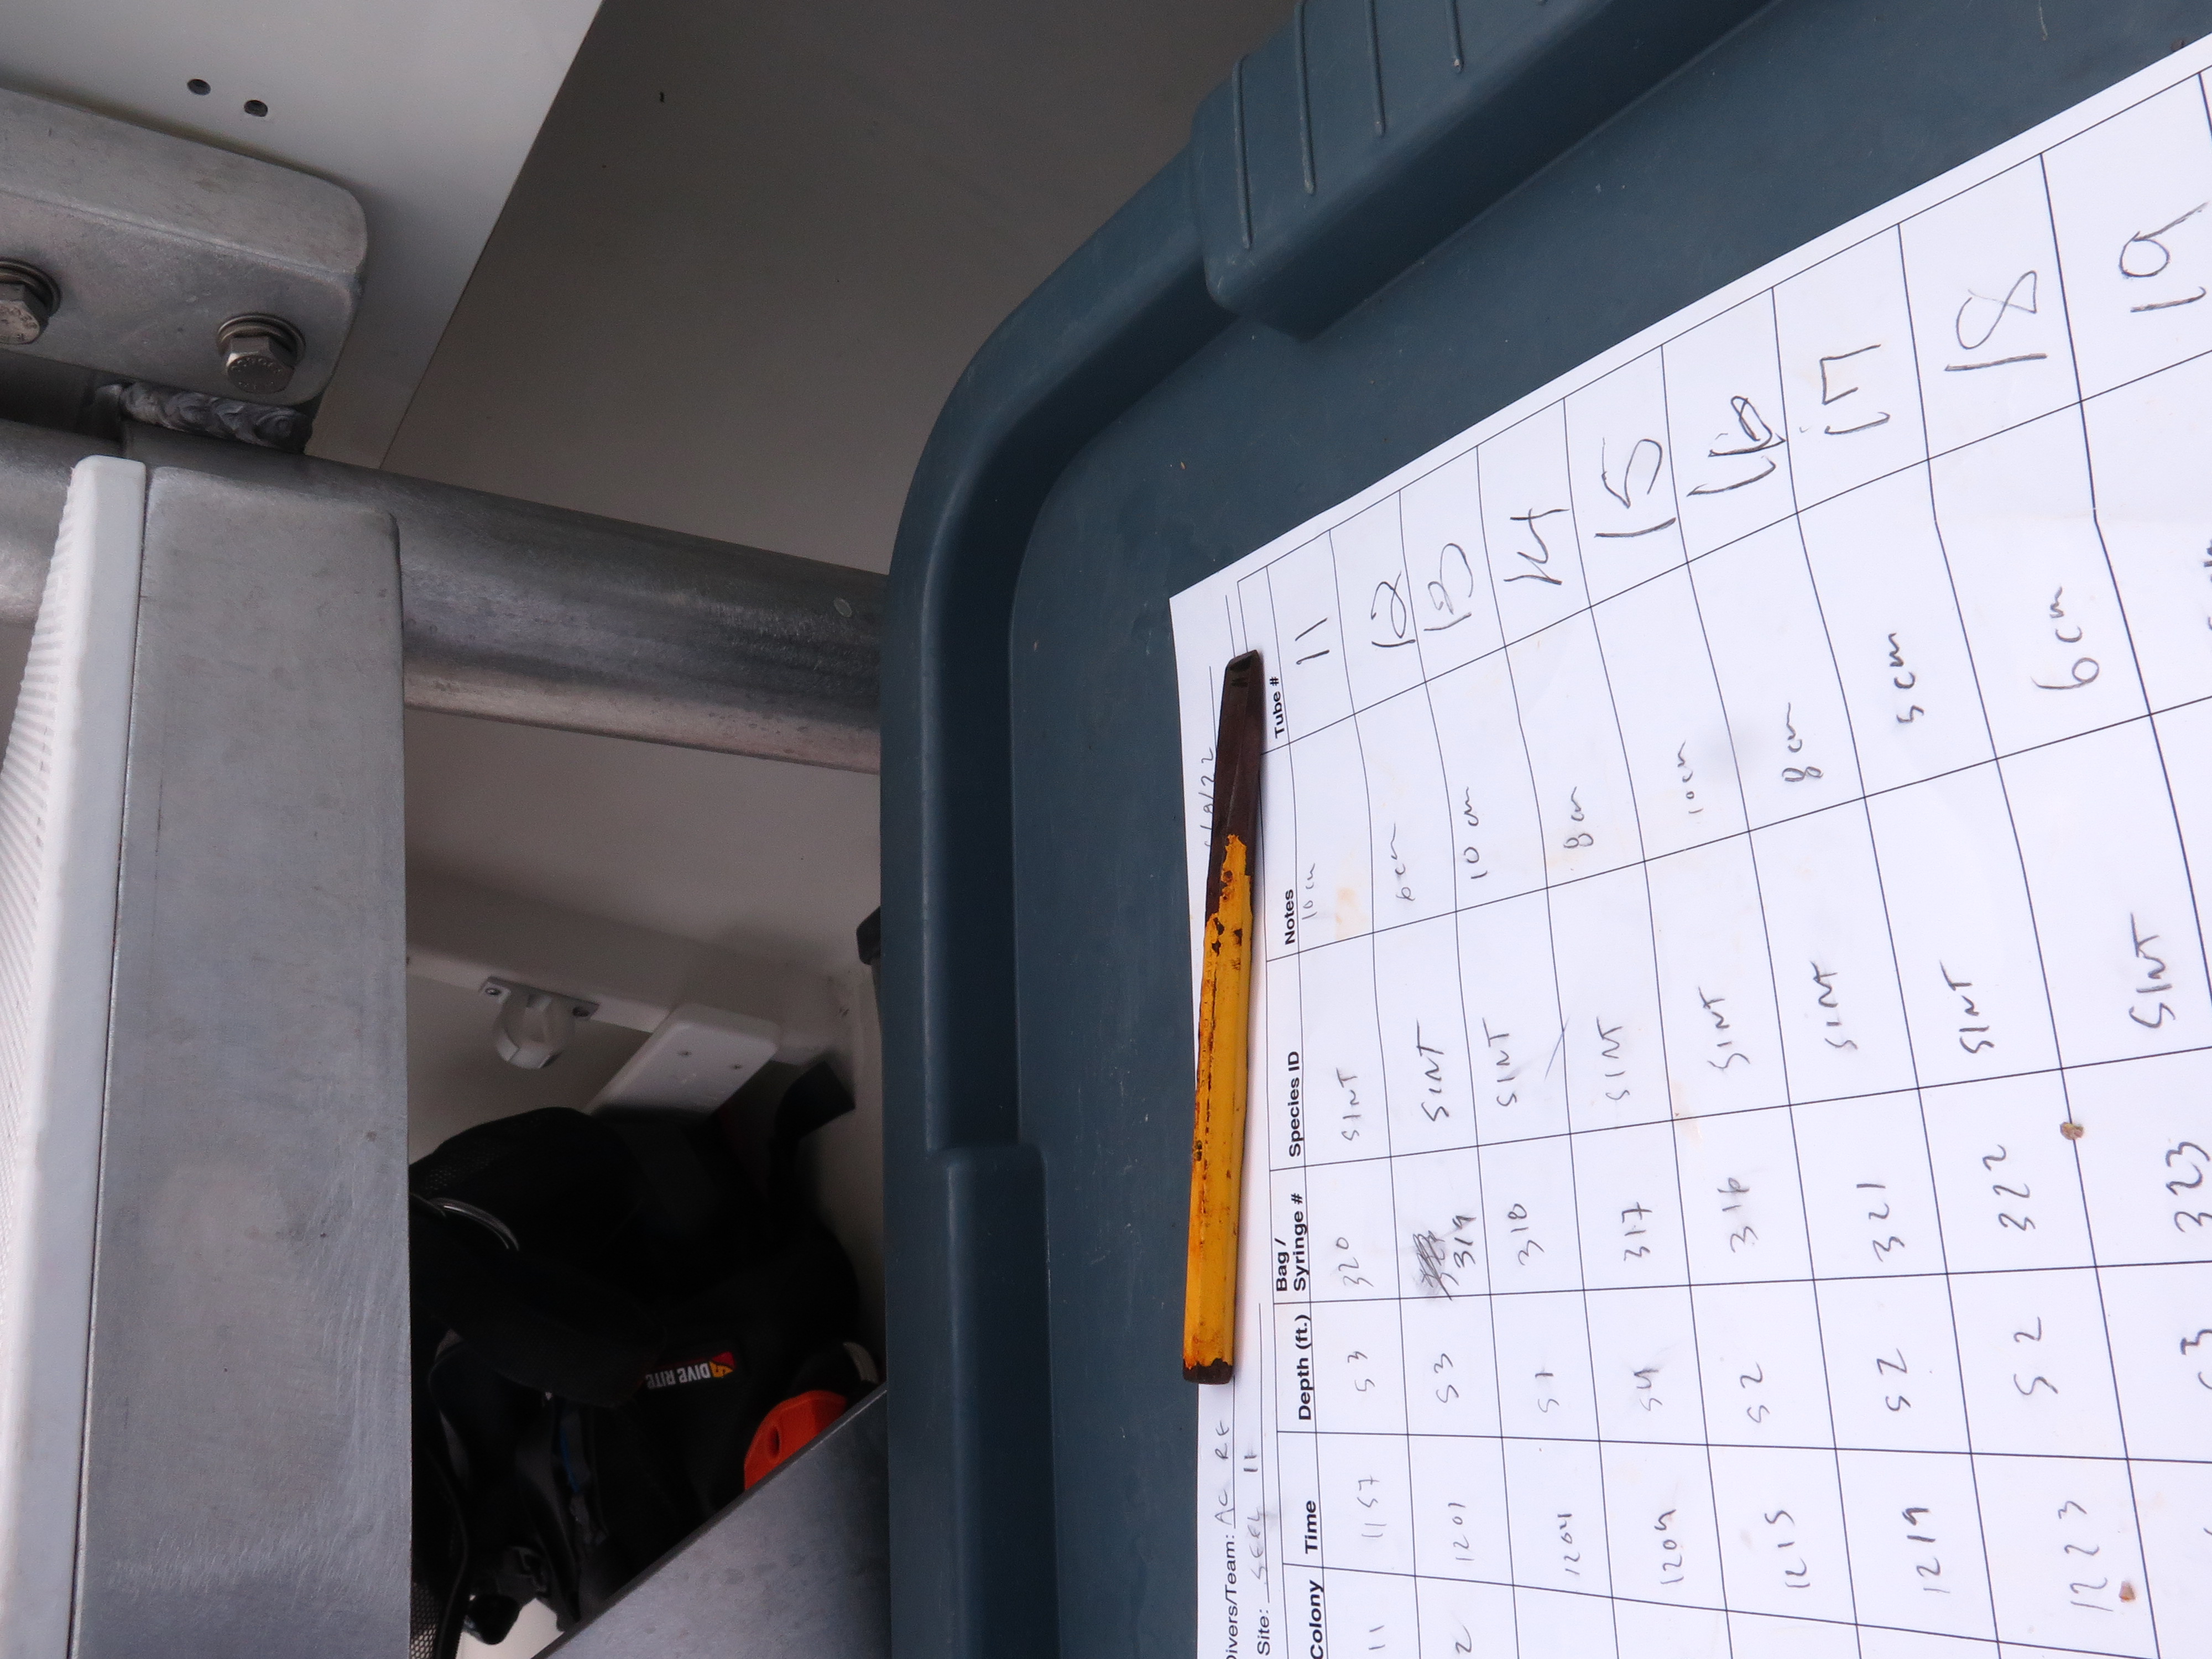 DIVE RITE
Divers/Team: AC RF /22
Site:
Colony Time Depth (ft.) Bag / Syringe # Species ID Notes Tube #
11 1157 53 320 SINT 10 cm 11
2 1201 53 319 SINT 6cm 12
1204 51 318 SINT 10 cm 13
1209 54 317 SINT 8 cm 14
1215 52 316 SINT 10cm 15
1219 52 321 SINT 8 cm 16
1223 52 322 SINT 5 cm 17
53 323 SINT 6 cm 18
19